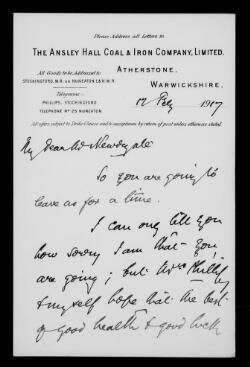 Please Address all Letters to
THE ANSLEY HALL COAL & IRON COMPANY, LIMITED.
All Goods to be Addressed to
STOCKINGFORD, M.R. OR NUNEATON L.& N.W.R.
ATHERSTONE,
WARWICKSHIRE,
Telegrams:-
PHILLIPS, STOCKINGFORD.
TELEPHONE Nº 25 NUNEATON
12 Feby 1917
All offers subject to Strike Clause and to acceptance by return of post unless otherwise stated.
My Dear Mr Newdegate
So you are going to
leave us for a time.
I can only tell you
how sorry I am that you
are going; but Mrs Phillips
& myself hope that the best
of good health & good luck